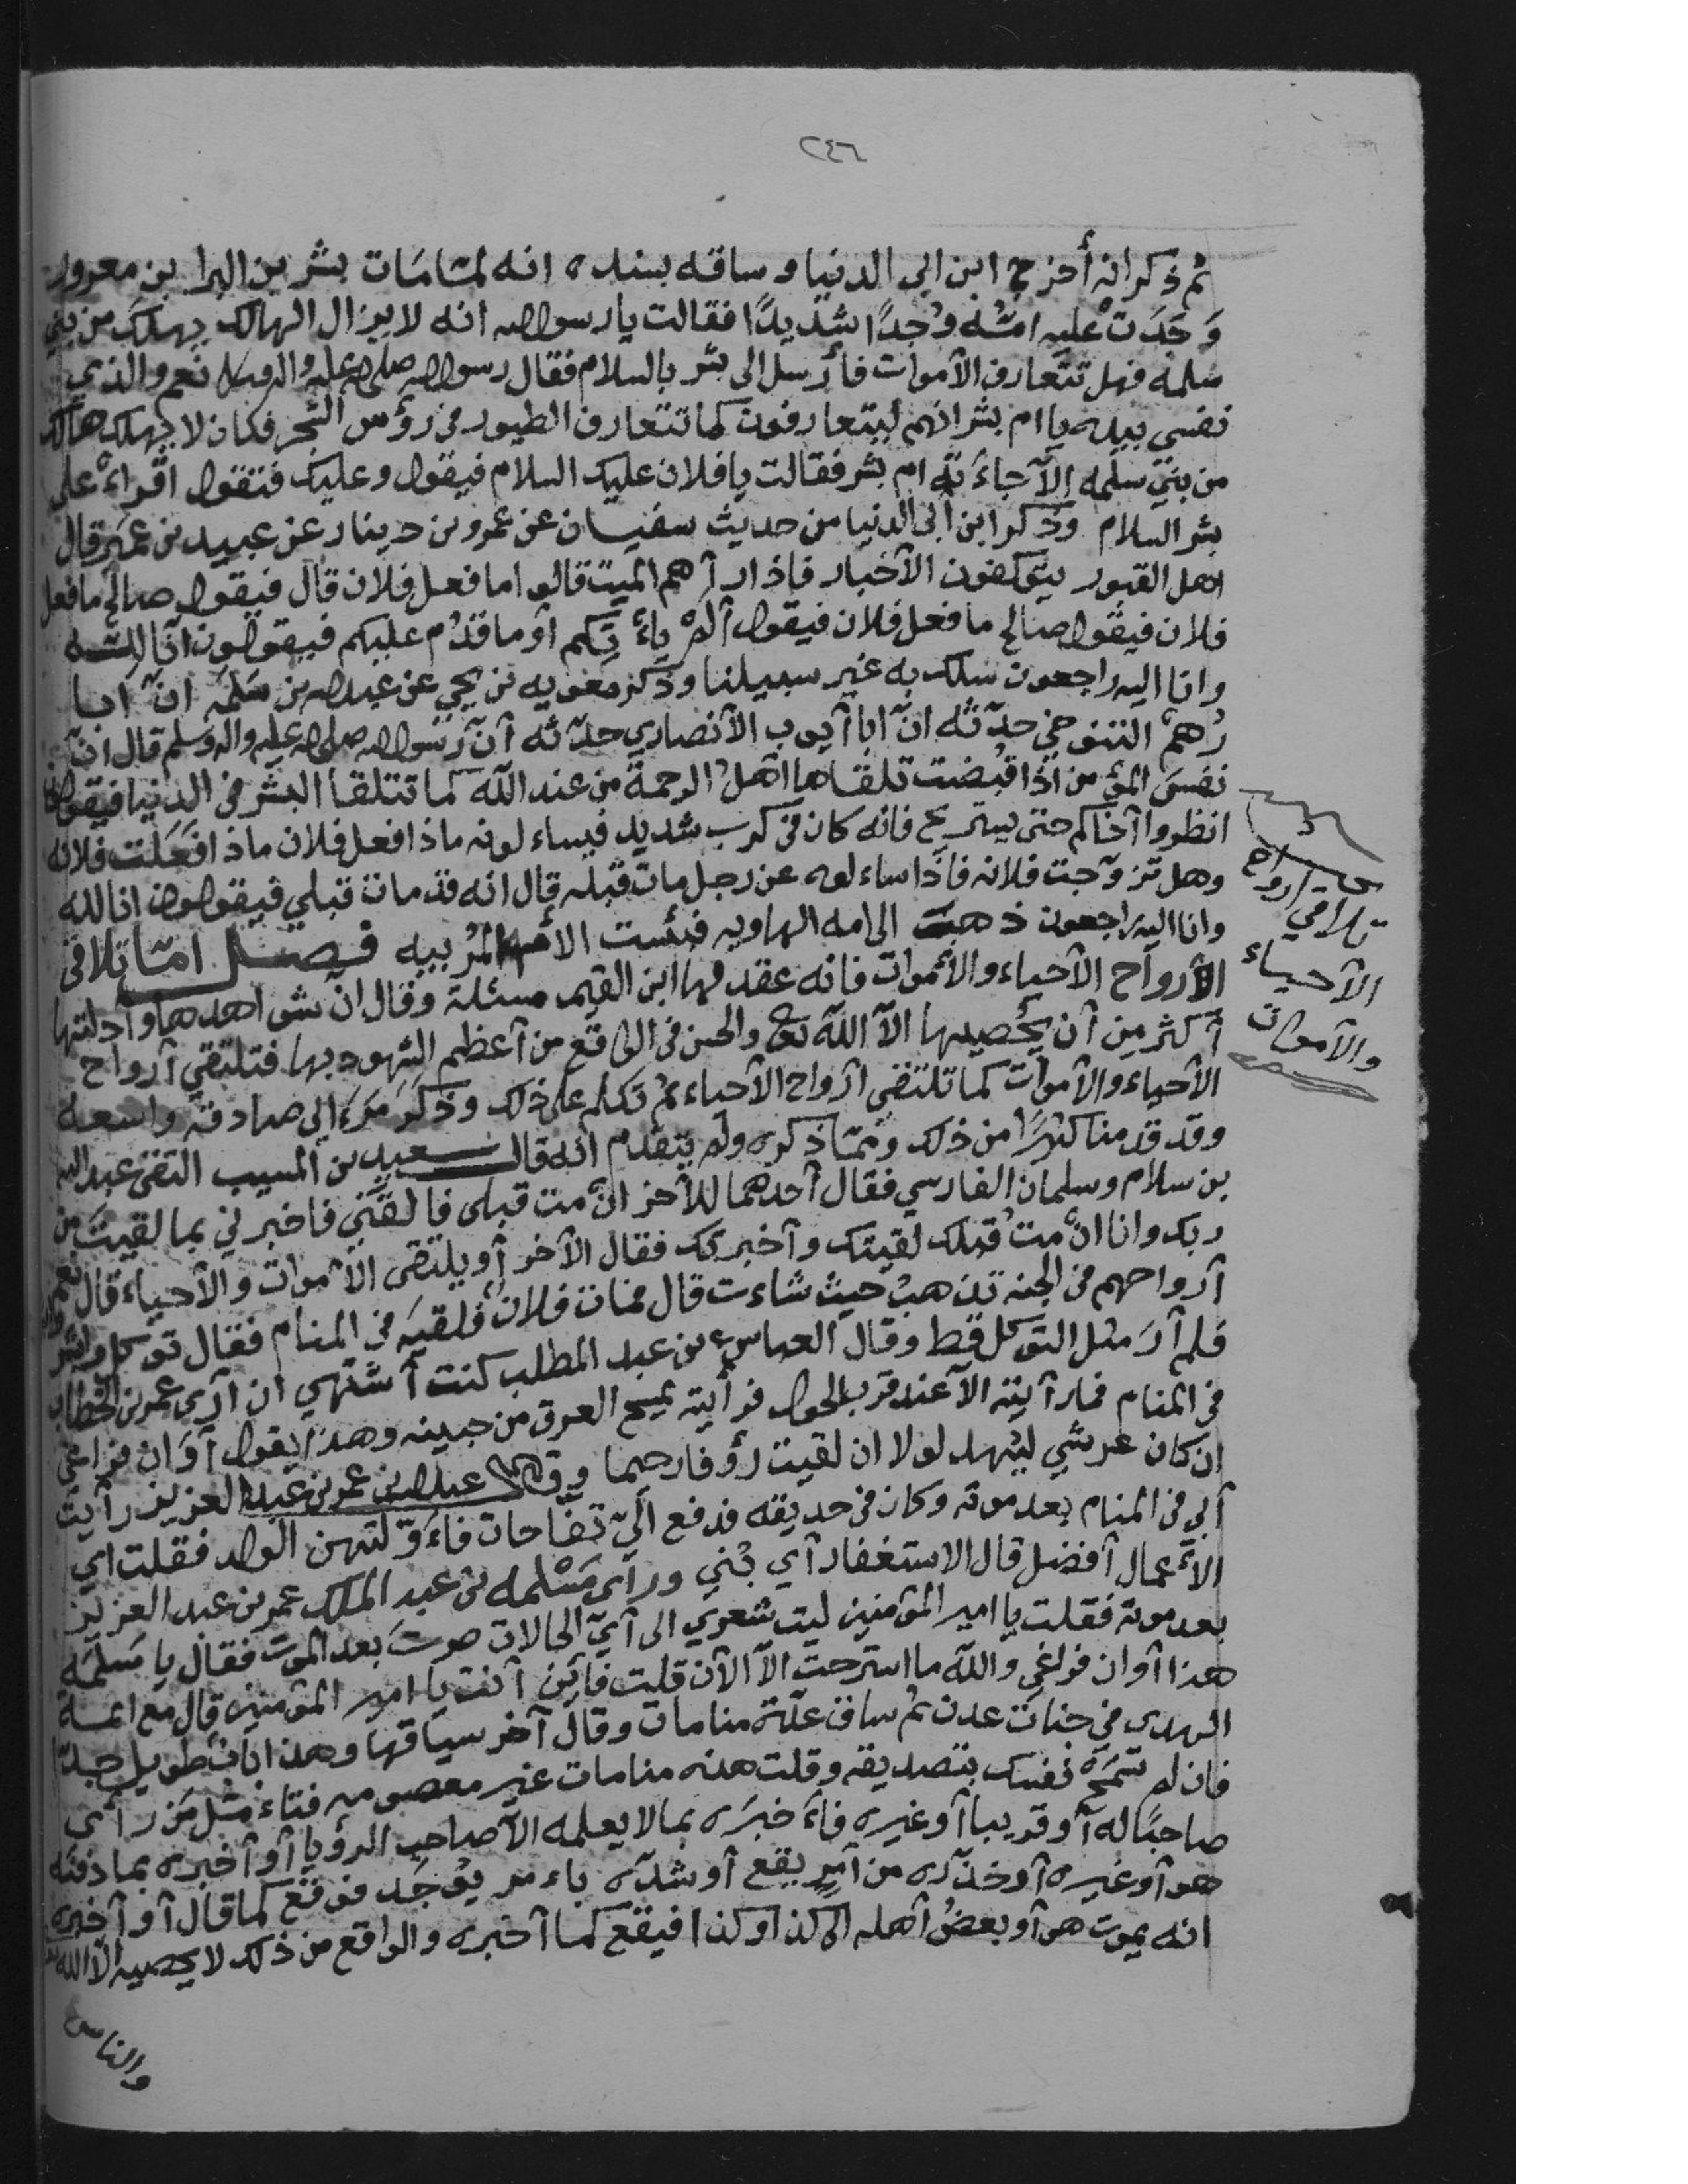 ٢٤٦
ثم ذكر انه أخرج ابن ابي الدنيا وساقه بسنده انه لما مات بشر بن البرا بن معرور
وَجَدَتْ عليه امّه وُجدًا شديدًا فقالت يا رسول الله انه لا يزال الهالك يهلك من بني
سلمه فهل تتعارف الأموات فأرسل الى بشر بالسلام فقال رسول الله صلى الله عليه واله وسلم نعم والذي
نفسي بيده يا ام بشر انهم ليتعارفون كما تتعارف الطيور في رؤس الشجر فكان لا يهلك هالك
من بني سلمه إلاّ جاءَته ام بشر فقالت يا فلان عليك السلام فيقول وعليك فتقول اقراءْ على
بشر السلام وذكر ابن أبي الدنيا من حديث سفيان عن عمرو بن دينار عن عبيد بن عمير قال
اهل القبور يتوكفون الأخبار فاذا رآهم الميت قالوا ما فعل فلان قال فيقول صالح ما فعل
فلان فيقول صالح ما فعل فلان فيقول ألم يأتكم أو ما قدم عليكم فيقولون انّا لله
وانا اليه راجعون سلك به غير سبيلنا وذكر معويه بن يحي عن عبد الله بن سلمه انّ ابا
رُهم التنوخي حدّثه انّ ابا أيوب الأنصاري حدّثه أنّ رسول الله صلى الله عليه واله وسلم قال انّ
نفسَ المؤمن اذا قبضت تلقاها اهل الرحمة من عند الله كما تتلقا البشر في الدنيا فيقولون
انظروا أخاكم حتى يستريح فانه كان في كرب شديد فيساءلونه ماذا فعل فلان ماذا فعَلت فلانه
وهل تزوّجت فلانه فاذا ساءلوه عن رجل مات قبله قال انه قد مات قبلي فيقولون انا لله
وانا اليه راجعون ذهبَ الى امه الهاويه فبئست الأم المُربيه فصل امّا تلاقي
الأرواح الأحياء والأموات فانه عقد لها ابن القيم مسئلة وقال انّ شواهدها وأدلتها
أكثر مِن أن يُحصيها الاّ الله تع والحس في الواقع من أعظم الشهود بها فتلتقي أرواح
الأحياء والأموات كما تلتقي أرواح الأحياء ثم تكلم على ذلك وذكَرَ مَرَاءِي صادقه واسعه
وقد قدمنا كثيرًا من ذلك وممّا ذكره ولم يتقدم انه قال سعيد بن المسيب التقى عبد الله
بن سلام وسلمان الفارسي فقال أحدهما للأخر انْ مت قبلي فالقَني فاخبرني بما لقيتَ من
ربك وانا انْ متُ قبلك لقيتك وأخبرتك فقال الأخر أو يلتقى الأموات والأحياء قال نعم
أرواحهم في الجنه تذهبُ حيث شاءت قال فمات فلان فلقيَه في المنام فقال توكل وابشر
فلم أرَ مثل التوكل قط وقال العباس بن عبد المطلب كنت أشتهي ان أرى عمر بن الخطاب
في المنام فما رأيته الاّ عند قرب الحول فرأيته يمسح العرق من جبينه وهذا يقول أوَان فراغي
ان كان عرشي ليهد لولا ان لقيت رؤفا رحيما وقال عبد الله بن عمر بن عبد العزيز رأيت
أبي في المنام بعد موته وكان في حديقه فدفع اليّ تفاحات فاءَوّلتهن الولد فقلت اي
الأعمال أفضل قال الاستغفار أي بُني ورأى مَسْلمه بن عبد الملك عمر بن عبد العزيز
بعد موته فقلت يا امير المؤمنين ليت شعري الى أيّ الحالات صرتَ بعد الموت فقال يا مَسلمَه
هذا أوان فراغي والله ما استرحت الاّ الأن قلت فأين أنت يا امير المؤمنين قال مع ائمة
الهدى في جنات عدن ثم ساق عدّة منامات وقال آخر سياقها وهذا باب طويل جدّا
فان لم تسمحْ نفسك بتصديقه وقلت هذه منامات غير معصومه فتاءمّل مَن رأى
صاحبًا له أو قريبا أو غيره فاءَخبرَه بما لا يعلمه الاّ صاحب الرؤيا أو أخبره بما دفنه
هو أو غيره أو حذّره من أمرٍ يقع أو بشّره باءمر يوجَد فوقع كما قال أو أخبره
انه يموت هو أو بعضُ أهله الى كذا وكذا فيقع كما أخبره والواقع من ذلك لا يحصيه الاّ الله
والناس
تلاقي ارواح
الأحياء
والأموات